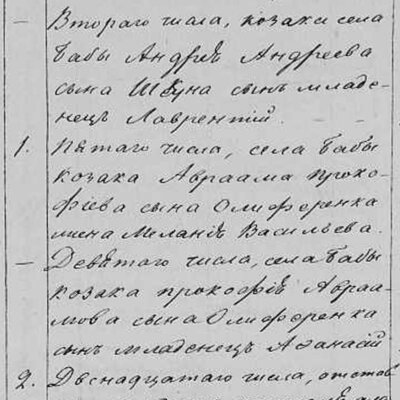 — Втораго числа, козака села
Бабы Андрея Андреева
сына Шкуна сынъ младе-
нецъ Лаврентій.
1. Пятаго числа, села Бабы
козака Авраама Проко-
фіева сына Олиференка
жена Меланія Васильева.
— Девятаго числа, села Бабы
козака Прокофія Авраа-
мова сына Олиференка
сынъ младенецъ Аѳанасій
2. Двенадцатаго числа, отстав